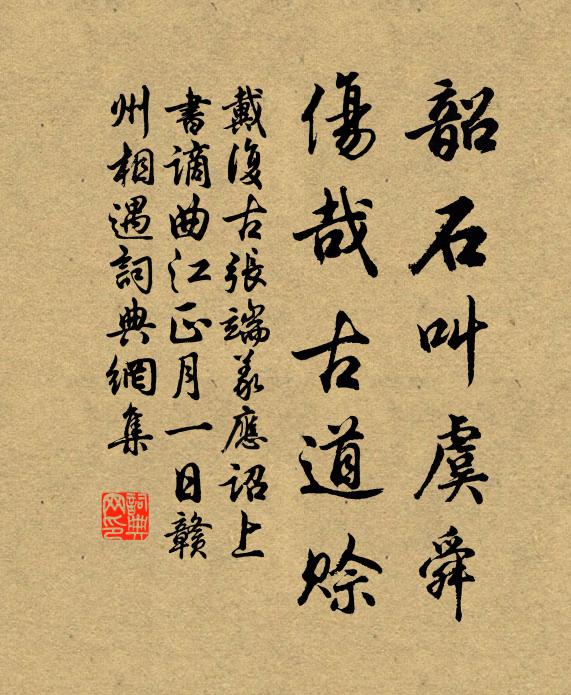 韶石叫虞舜
傷哉古道賒
戴復古張端義應詔上
書謫曲江正月一日贛
州相遇詞典網集
詞典
网印